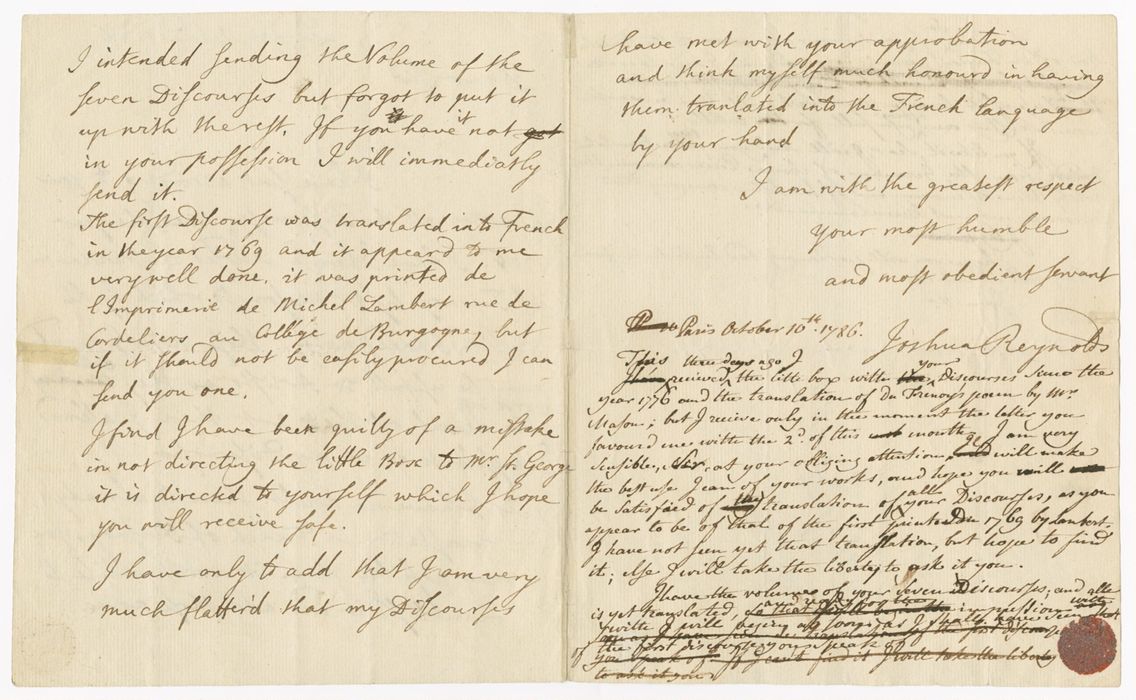 I intended sending the Volume of the
seven Discourses but forgot to put it
up with the rest. If you have it not got
in your possession I will immediatly
send it.
The first Discourse was translated into French
in the year 1769 and it appeard to me
very well done, it was printed de
l'Imprimerie de Michel Lambert rue de
Cordeliers au Collége de Burgogne, but
if it should not be easily procured I can
send you one.
I find I have been guilty of a mistake
in not directing the little Box to Mr. St. George
it is directed to yourself which I hope
you will receive safe.
I have only to add that I am very
much flatter'd that my Discourses
have met with your approbation
and think myself much honourd in having
them translated into the French language
by your hand
I am with the greatest respect
your most humble
and most obedient servant
Joshua Reynolds
Paris October 10th. 1786.
This three days ago I
received the litle box withe your Discourses since the
year 1776 and the translation of du Frenoy's poem by Mr.
Mason; but I recive only in this moment the letter you
favour'd me withe the 2d. of this month. I am very
sensible, Sir, at your obliging attention, will make
the best use I can of your works, and hope you will
be satisfied of my translation of all your Discourses, as you
appear to be of that of the first printed in 1769 by Lambert.
I have not seen yet that translation, but hope to find
it; else I will take the liberty to ask it you.
I have the volumes of your seven Discourses, and alle
is yet translated,
withe I will begin as soon, as I shall have
the first discourse you speak of.
you speak of. If I can't find it I will take the liberty
to ask it you.